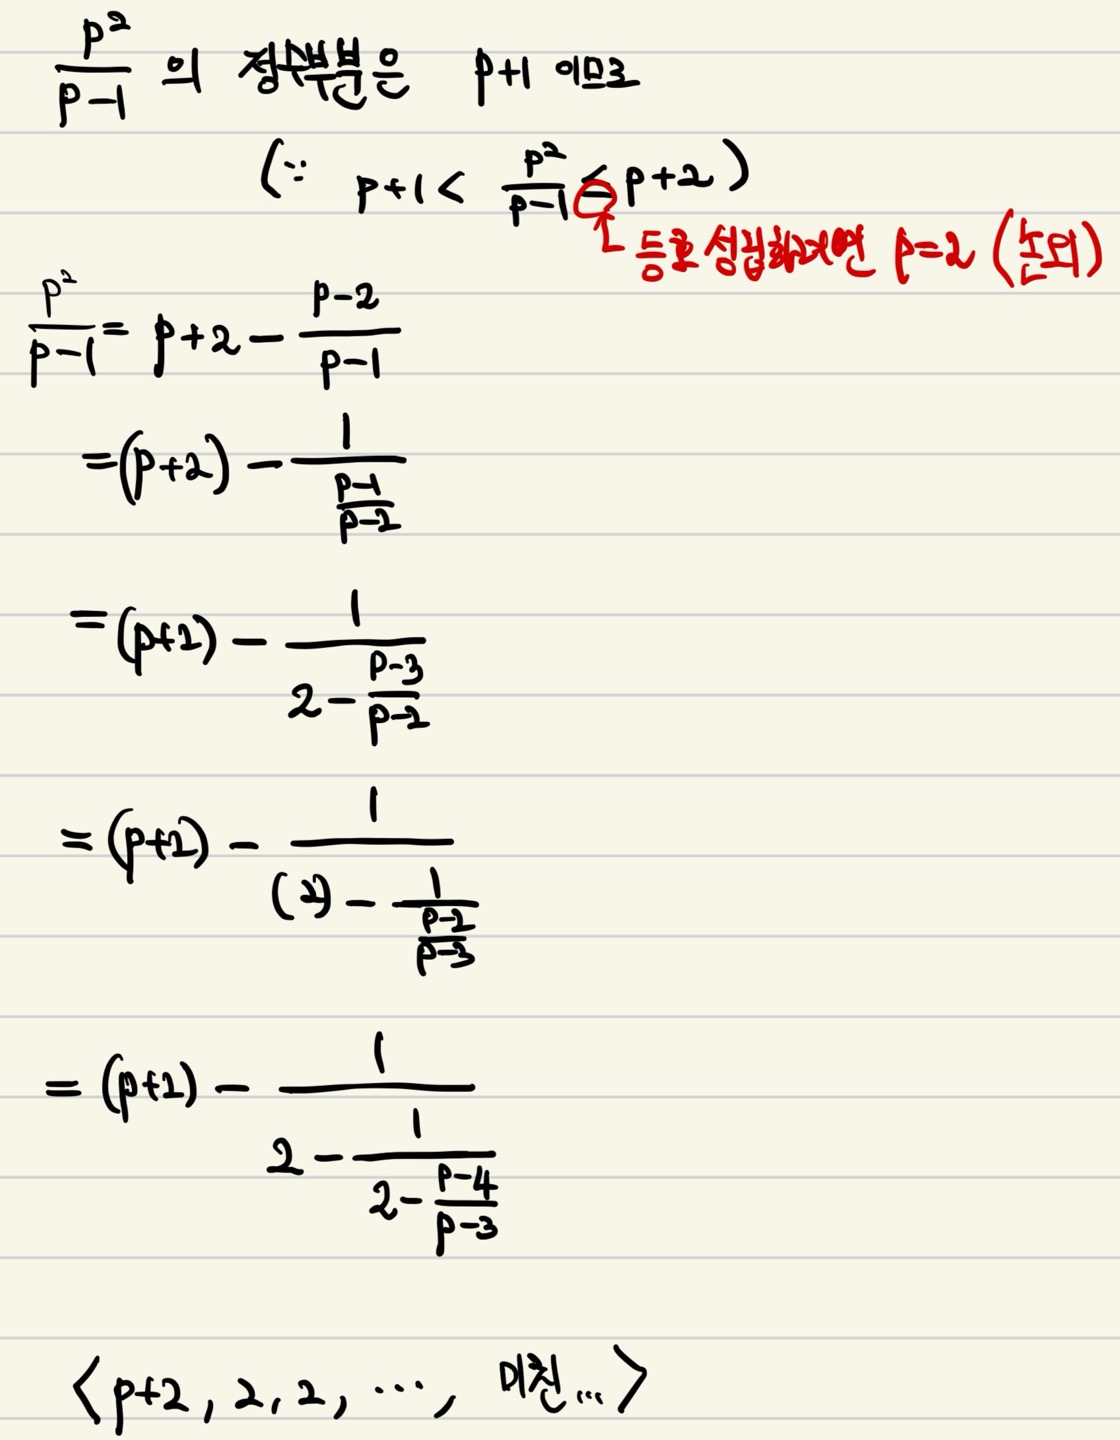 p²/(p-1) 의 정수부분은 p+1 이므로
(∵ p+1 < p²/(p-1) ≤ p+2)
등호 성립하려면 p=2 (논외)
p²/(p-1) = p+2 - (p-2)/(p-1)
=(p+2) - 1/((p-1)/(p-2))
=(p+2) - 1/(2 - (p-3)/(p-2))
=(p+2) - 1/((2) - 1/((p-2)/(p-3)))
=(p+2) - 1/(2 - 1/(2 - (p-4)/(p-3)))
<p+2, 2, 2, ⋯, 미친...>